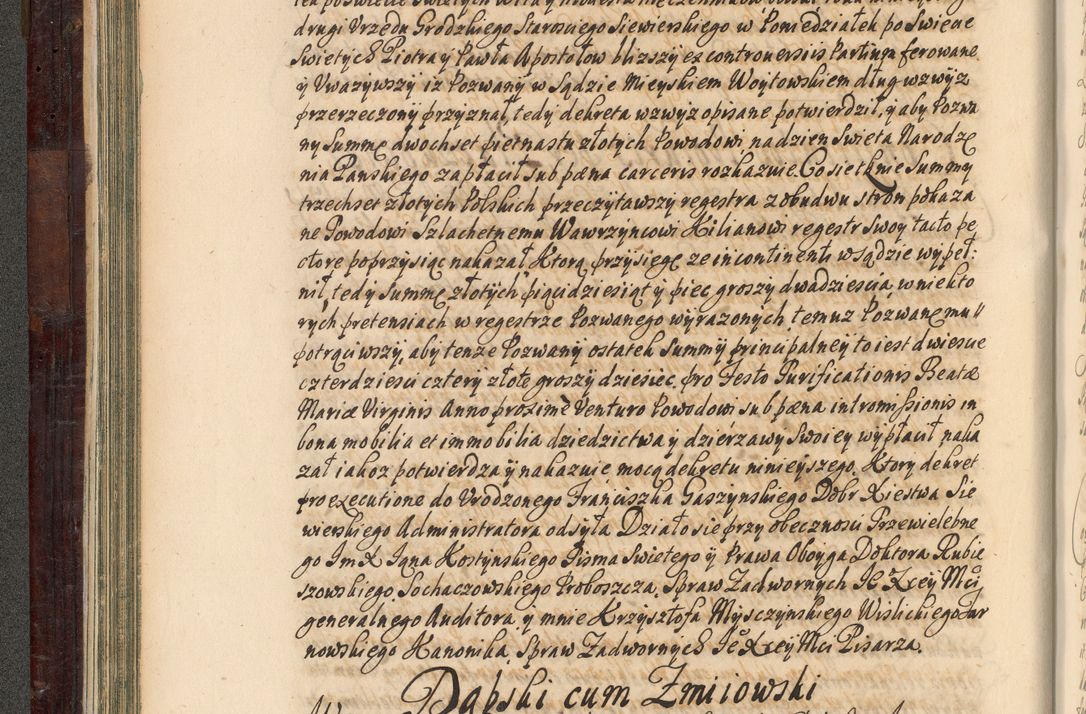 drugi Vrzędu Grodzkiego Starosciego Siewierskiego w Poniedziałek po Swięcie
Swietych Piotra y Pawła Apostołow blizszy ex controversiis Partium ferowane
y Vwazywszy iz Pozwany w Sądzie Mieyskiem Woytowskiem dług wzwyz
przerzeczony przyznał, tedy dekreta wzwyz opisane potwierdził, y aby Pozwa
ny Summę dwochset pietnastu złotych Powodowi na dzien Swieta Narodze
nia Panskiego zapłacił sub pæna carceris rozkazuie. Co sie tknie Summy
trzechset złotych Polskich przeczytawszy regestra z obudwu stron pokaza
ne Powodowi Szlachetnemu Wawrzyncowi Kilianowi regestr Swoy tacto pe
ctore poprzysiąc nakazał Ktorą przysięgę ze in continenti w sądzie wypeł:
nił, tedy Summę złotych pięcidziesiąt y pięc groszy dwadziescia, w niekto
rych pretensiach w regestrze Pozwanego wyrazonych temuz Pozwanemu
potrąciwszy, aby tenze Pozwany ostatek Summy principalney to iest dwiescie
czterdziesci cztery złote groszy dziesięc pro Festo Purificationis Beatæ
Mariæ Virginis Anno proximè Venturo Powodowi sub pæna intromissionis in
bona mobilia et immobilia dziedzictwa y dzierzawy Swoiey wypłacił naka
zał iakoz potwierdza y nakazuie mocą dekretu ninieyszego. Ktory dekret
pro executione do Vrodzonego Franciszka Gaszynskiego Dobr Xiestwa Sie
wierskiego Administratora odsyła Działo sie przy obecznosci Przewielebne
go Im X Igna Kostynskiego Pisma Swietego y Prawa Oboyga Doktora Rubie
szowskiego, Sochaczowskiego Proboszcza, Spraw Zadwornych Je Xcey Mci
generalnego Auditora, y mnie Krzysztofa Mysczynskiego Wislickiego Tar
nowskiego Kanonika, Spraw Zadwornych Je Xcey Mci Pisarza.
Dąbski cum Zmiiowski